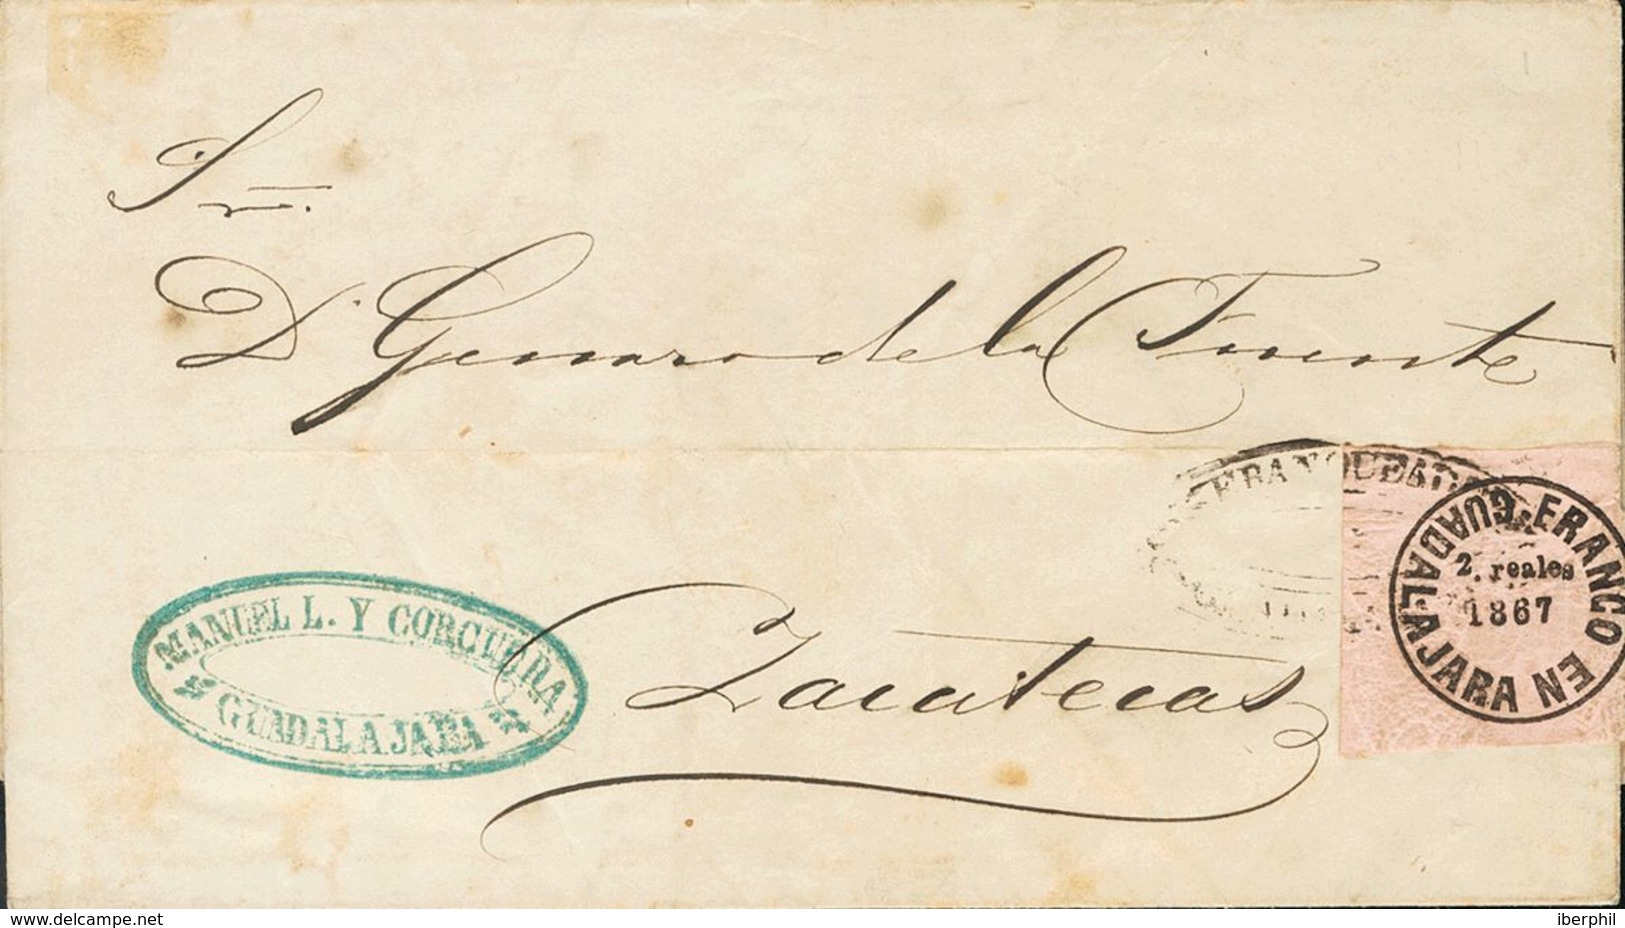 Sr.
D. Genaro de la Fuente
FRANQUEADO
FRANCO EN GUADALAJARA
2. reales
1867
MANUEL L. Y CORCUERA
GUADALAJARA
Zacatecas
www.delcampe.net
iberphil